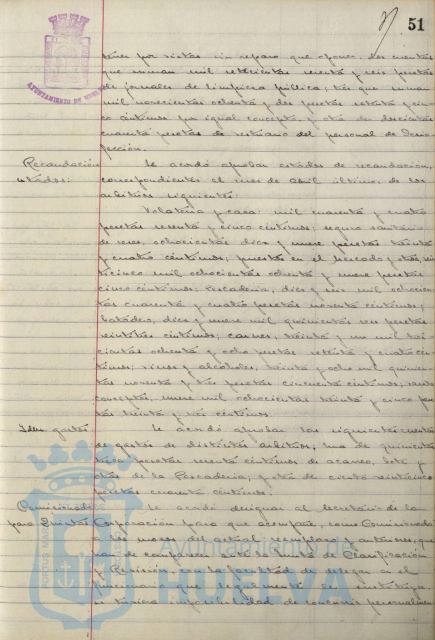 51
AYUNTAMIENTO DE HUELVA
tener por vistas sin reparo que oponer, dos cuentas
que suman mil setecientas setenta y seis pesetas
de jornales de limpieza pública; tres que suman
mil novecientas ochenta y dos pesetas setenta y cin-
co céntimos por igual concepto, y otra de doscientas
cuenta pesetas de vestuario del personal de
Recaudación Se acordó aprobar estados de recaudación,
correspondientes al mes de Abril último, de los
arbitrios siguientes:
Volatería y caza: mil cuarenta y cuatro
pesetas sesenta y cinco céntimos; seguro sanitario
de reses, ochocientas diez y nueve pesetas treinta
y cuatro céntimos; puestos en el mercado y otros,
cinco mil ochocientas ochenta y nueve pesetas
cinco céntimos; Pescadería, diez y seis mil ochocien-
tas cuarenta y cuatro pesetas noventa céntimos;
Matadero, diez y nueve mil quinientas seis pesetas
céntimos; carnes, treinta y un mil
cientas ochenta y ocho pesetas setenta y cuatro cén-
timos; vinos y alcoholes, treinta y ocho mil quinien-
tas noventa y tres pesetas cincuenta céntimos; varios
conceptos, nueve mil ochocientas treinta y cinco pese-
tas treinta y seis céntimos.
Idem gastos Se acordó aprobar las siguientes cuentas
de gastos de distintos arbitrios, una de quinientas
pesetas sesenta céntimos de acarreo,
otras de la Pescadería; y otra de ciento veinticinco
pesetas cuarenta céntimos.
Comisionado Se acordó designar al Secretario de la
para Quintas Corporación para que acompañe, como Comisionado
a los mozos del actual reemplazo y anteriores, que
van de comparecer ante la Junta de Clasificación
y Revisión, con la facultad de delegar en el
funcionario que reglamentariamente le sustituya
imposibilidad de concurrir personalmen-
Ayuntamiento de
HUELVA